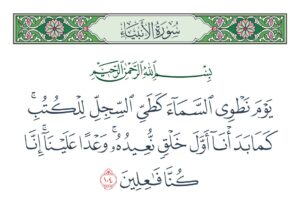 سُورَةُ الأَنْبِيَاءِ
بِسْمِ اللَّهِ الرَّحْمَٰنِ الرَّحِيمِ
يَوْمَ نَطْوِي السَّمَاءَ كَطَيِّ السِّجِلِّ لِلْكُتُبِ ۚ
كَمَا بَدَأْنَا أَوَّلَ خَلْقٍ نُعِيدُهُ ۚ وَعْدًا عَلَيْنَا ۚ إِنَّا
كُنَّا فَاعِلِينَ ١٠٤